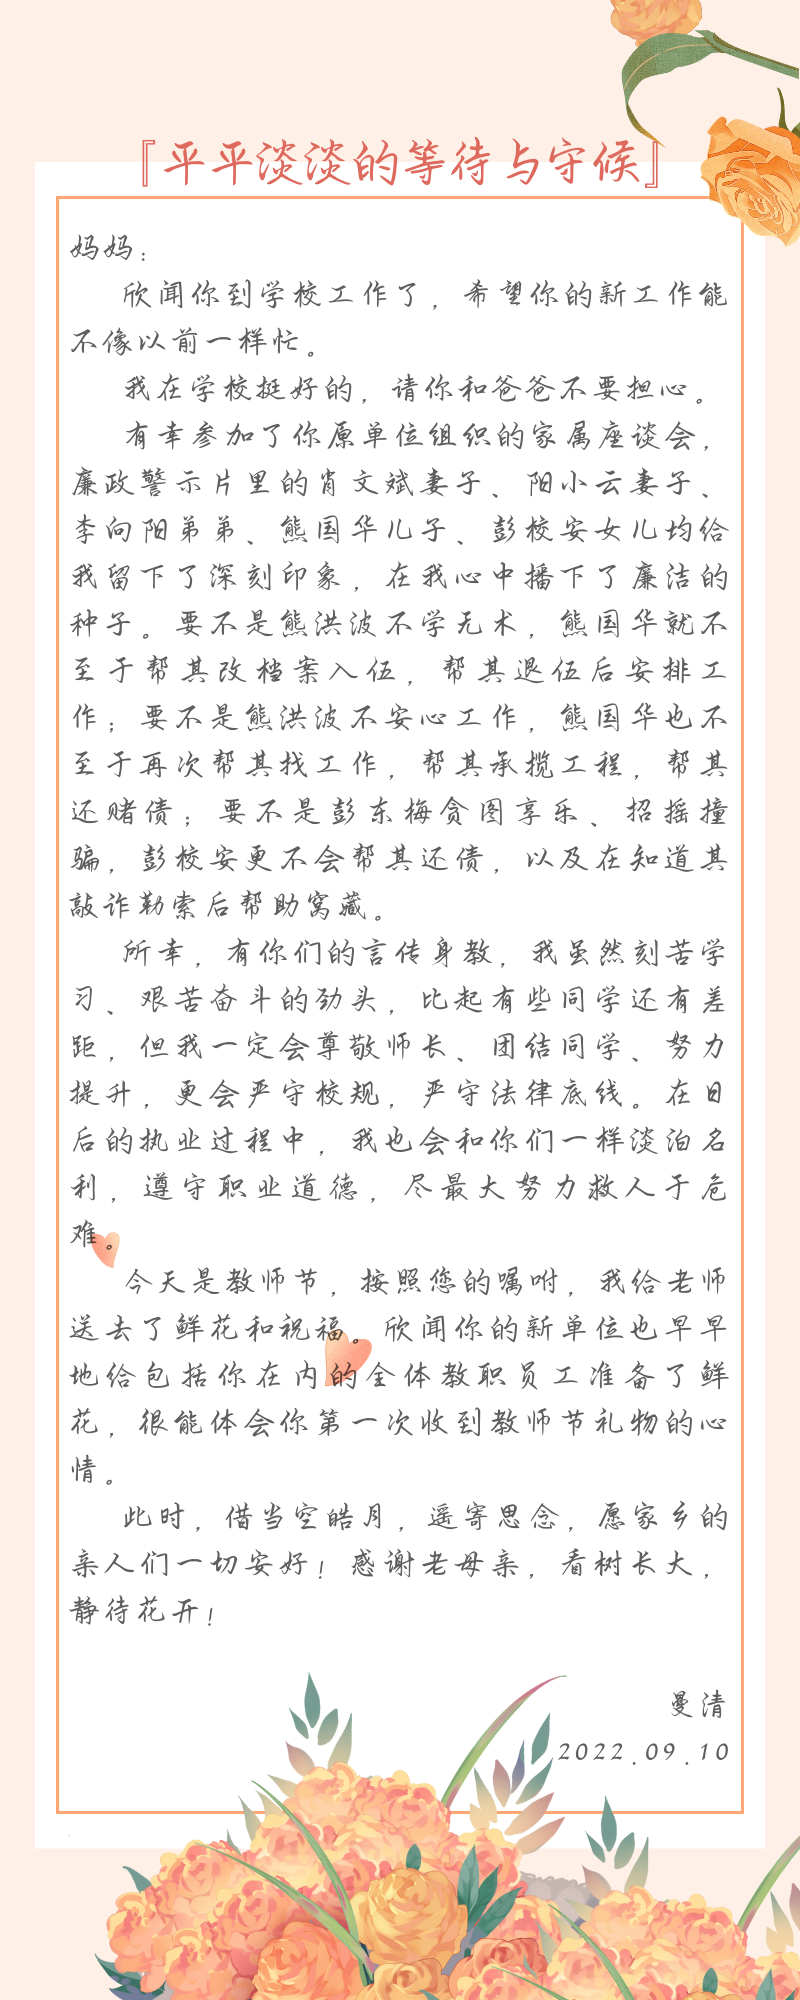 『平平淡淡的等待与守候』
妈妈：
欣闻你到学校工作了，希望你的新工作能
不像以前一样忙。
我在学校挺好的，请你和爸爸不要担心。
有幸参加了你原单位组织的家属座谈会，
廉政警示片里的肖文斌妻子、阳小云妻子、
李向阳弟弟、熊国华儿子、彭校安女儿均给
我留下了深刻印象，在我心中播下了廉洁的
种子。要不是熊洪波不学无术，熊国华就不
至于帮其改档案入伍，帮其退伍后安排工
作；要不是熊洪波不安心工作，熊国华也不
至于再次帮其找工作，帮其承揽工程，帮其
还赌债；要不是彭东梅贪图享乐、招摇撞
骗，彭校安更不会帮其还债，以及在知道其
敲诈勒索后帮助窝藏。
所幸，有你们的言传身教，我虽然刻苦学
习、艰苦奋斗的劲头，比起有些同学还有差
距，但我一定会尊敬师长、团结同学、努力
提升，更会严守校规，严守法律底线。在日
后的执业过程中，我也会和你们一样淡泊名
利，遵守职业道德，尽最大努力救人于危
难。
今天是教师节，按照您的嘱咐，我给老师
送去了鲜花和祝福。欣闻你的新单位也早早
地给包括你在内的全体教职员工准备了鲜
花，很能体会你第一次收到教师节礼物的心
情。
此时，借当空皓月，遥寄思念，愿家乡的
亲人们一切安好！感谢老母亲，看树长大，
静待花开！
曼清
2022.09.10